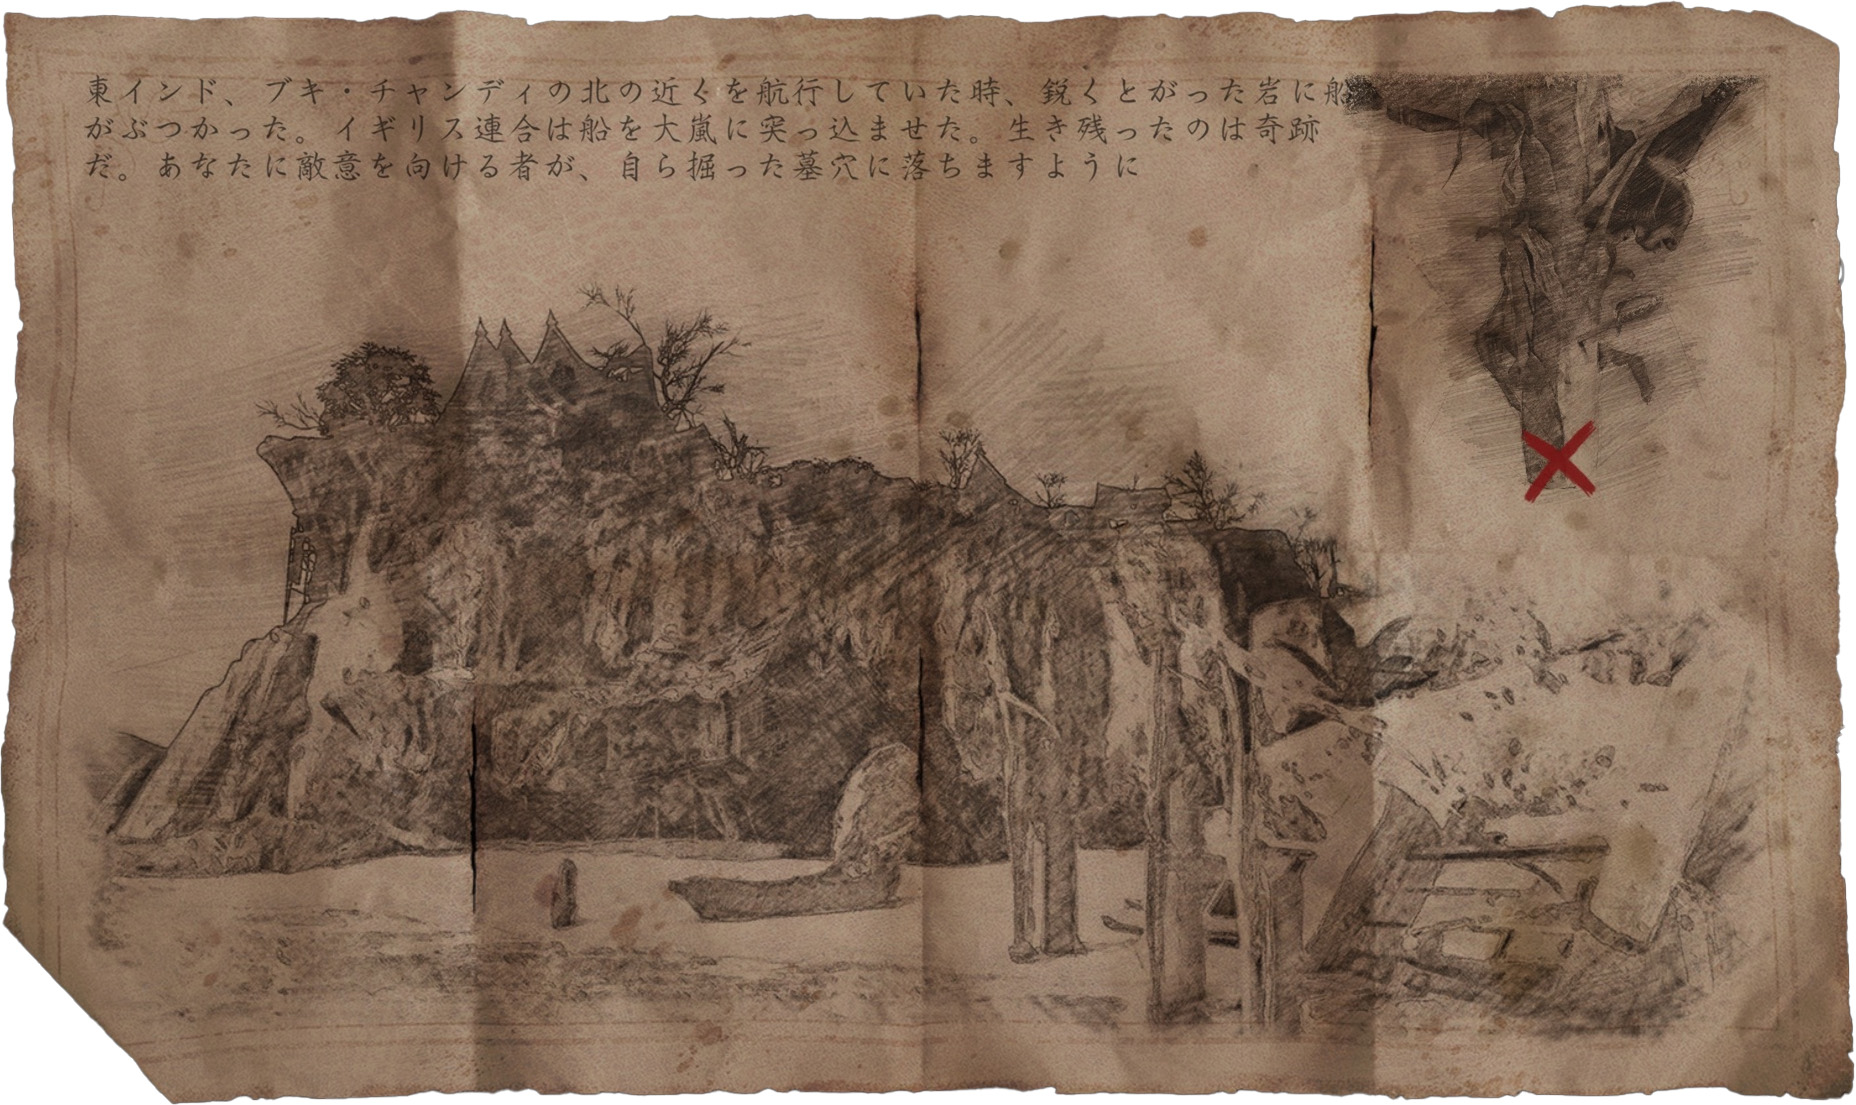 東インド、ブキ・チャンディの北の近くを航行していた時、鋭くとがった岩に船
がぶつかった。イギリス連合は船を大嵐に突っ込ませた。生き残ったのは奇跡
だ。あなたに敵意を向ける者が、自ら掘った墓穴に落ちますように